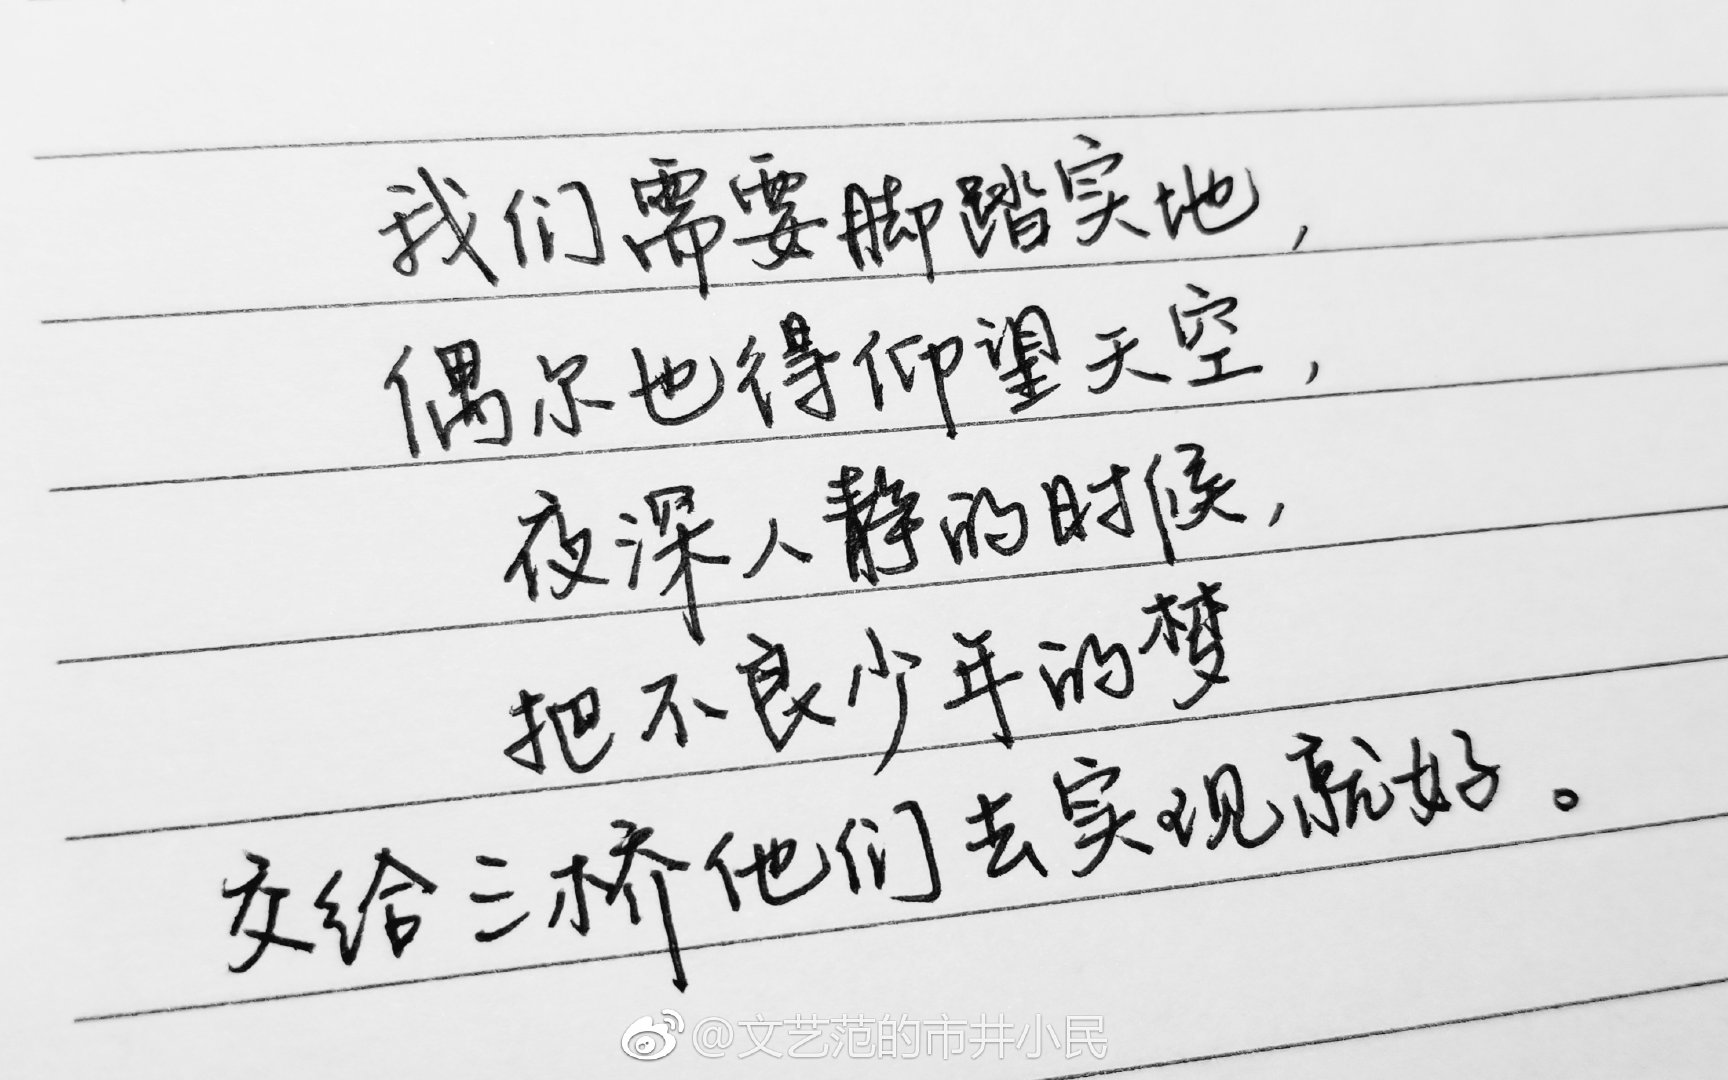 我们需要脚踏实地，
偶尔也得仰望天空，
夜深人静的时候，
把不良少年的梦
交给三桥他们去实现就好。
@文艺范的市井小民